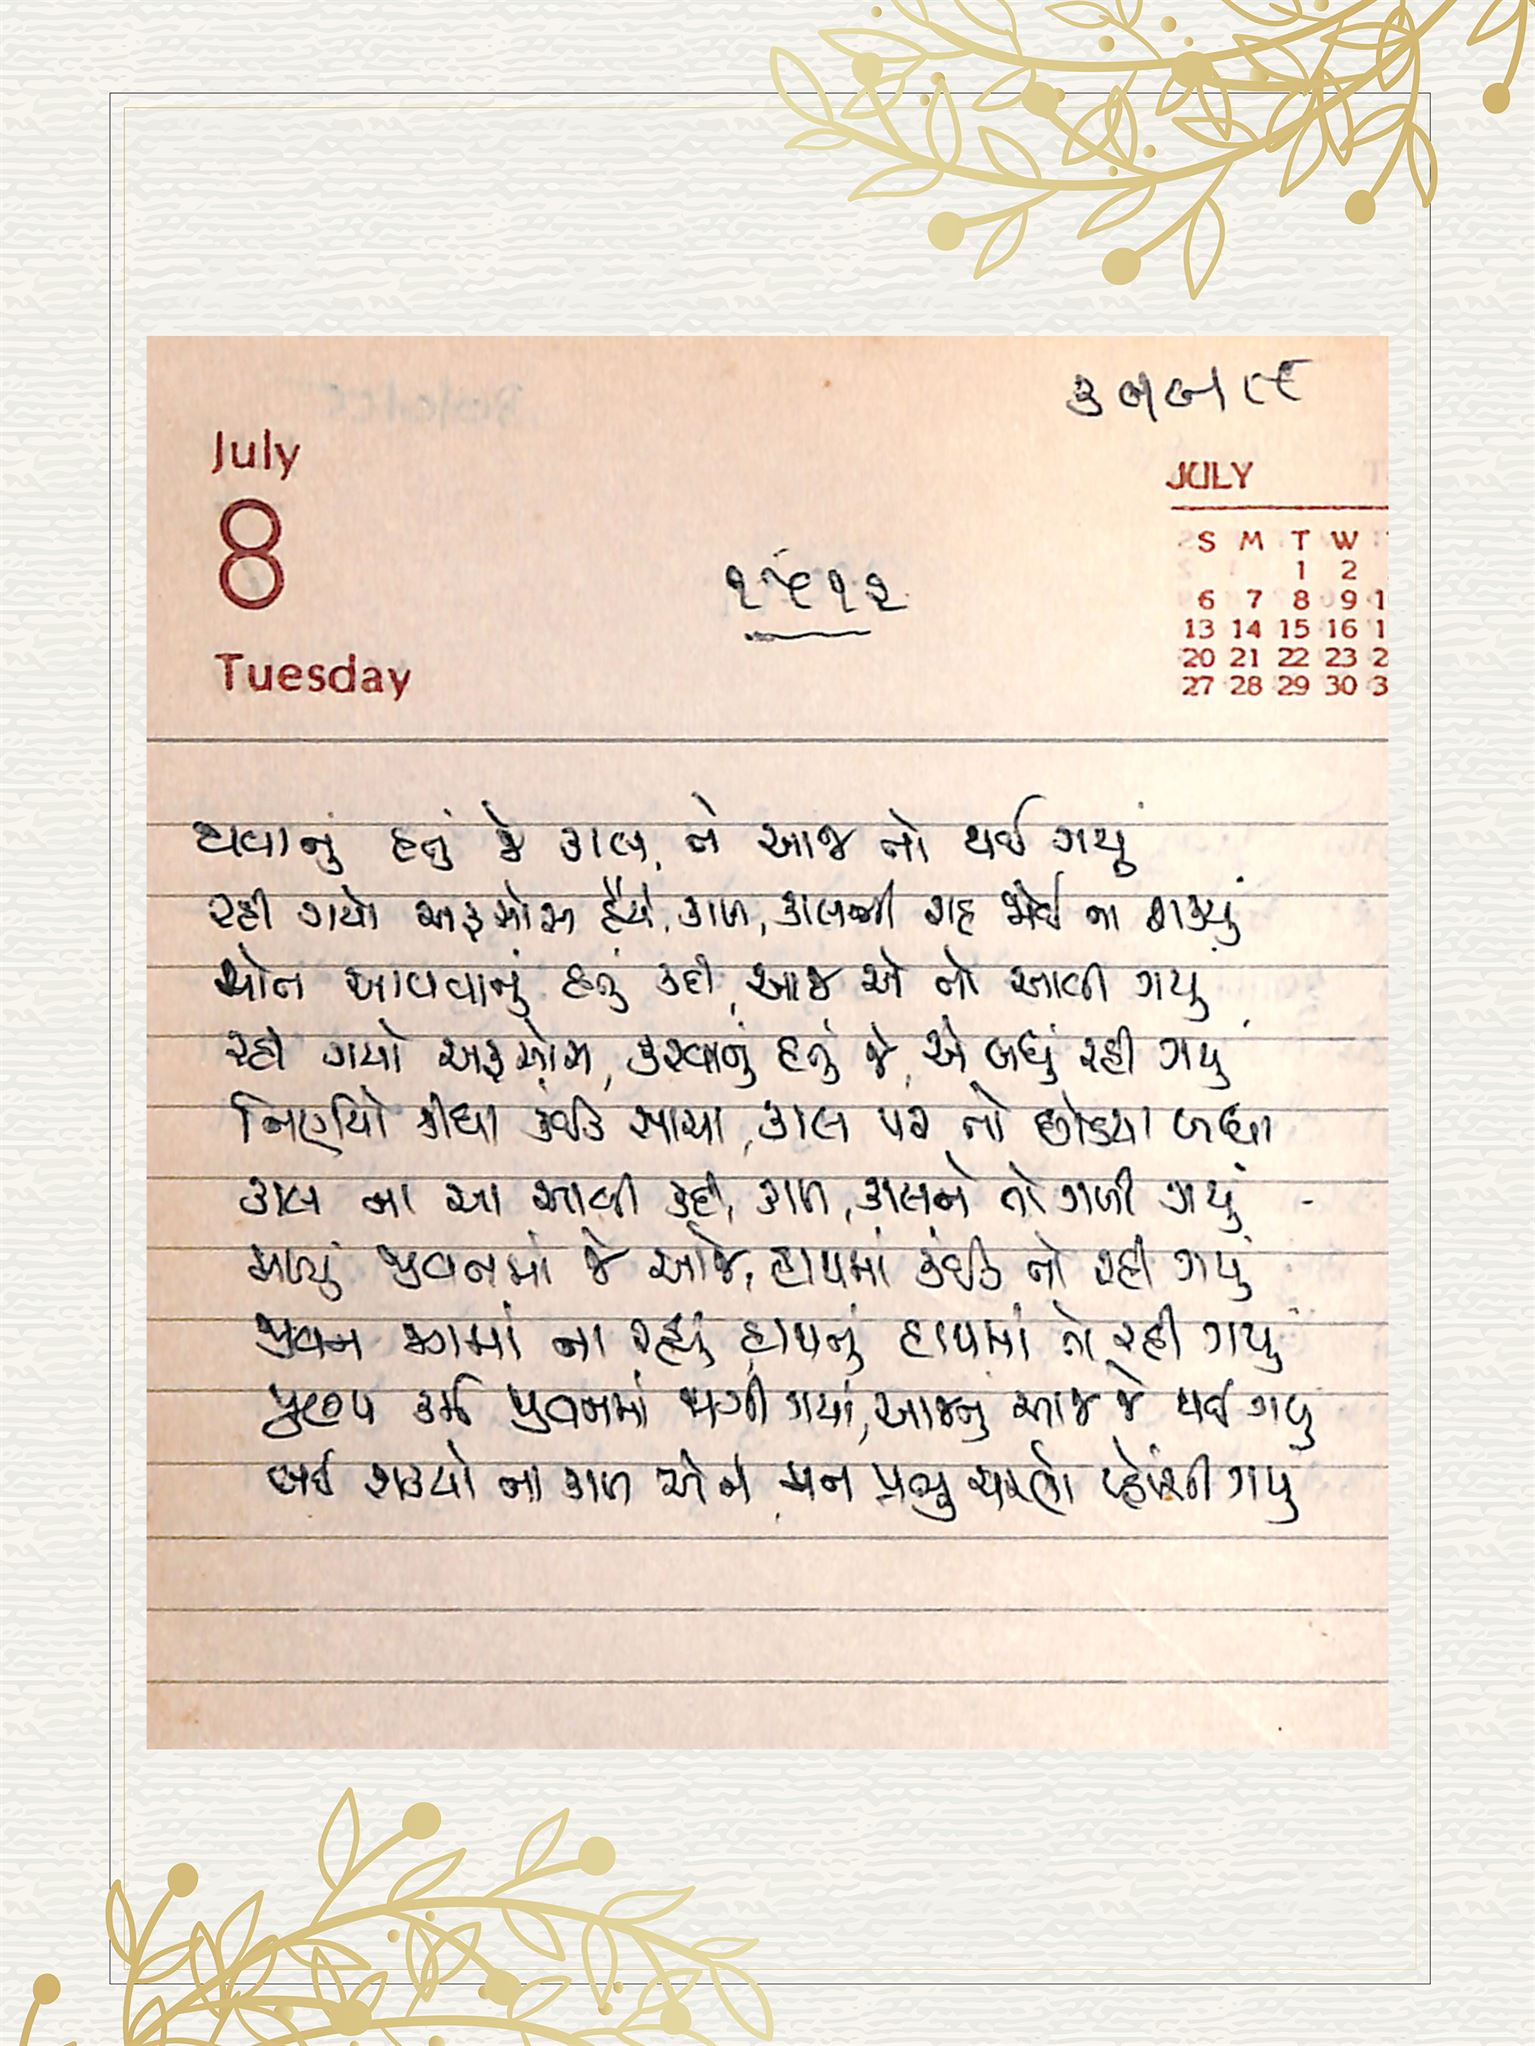 July
8
Tuesday
JULY
S M T W
1 2
6 7 8 9 1
13 14 15 16 1
20 21 22 23 2
27 28 29 30 3
થવાનું હતું જે કાલ, તે આજ તો થઈ ગયું
રહી ગયો અફસોસ હૈયે, કાળ, કાલની રાહ જોઈ ના શક્યું
મોત આવવાનું હતું કદી, આજ એ તો આવી ગયું
રહી ગયો અફસોસ, કરવાનું હતું જે, એ બધું રહી ગયું
નિર્ણયો કીધા કંઈક સાચા, કાલ પર તો છોડયા બધા
કાલ ના આ આવી કદી, કાળ, કાલને તો ગળી ગયું
મળ્યું જીવનમાં જે આજે, હાથમાં કંઈક તો રહી ગયું
જીવન કાબૂમાં ના રહ્યું હાથનું હાથમાં તો રહી ગયું
પુણ્ય કર્મ જીવનમાં જાગી ગયાં, આજનું આજ જે થઈ ગયું
લઈ શક્યો ના કાળ એને, મન પ્રભુ ચરણે પ્હોંચી ગયું